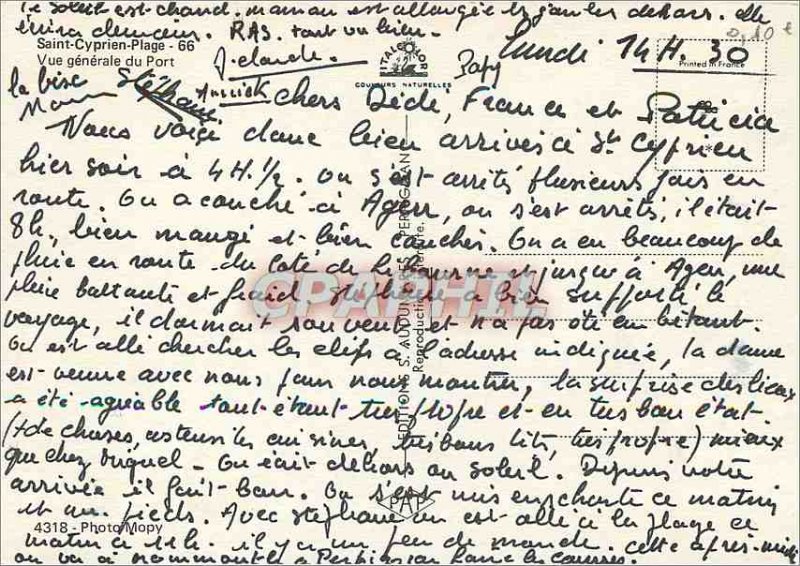 le soleil est chaud. maman est allongée les jambes dehors. elle
RAS. tout va bien.
J. Claude.
0,10 €
Saint-Cyprien-Plage - 66
Vue générale du Port
ITALCOLOR
COULEURS NATURELLES
Lundi 14 H. 30
Printed in France
la bise
Stéphane
Annick
Papy
Mamy
chers Dédé, France et Patricia
Nous voici donc bien arrivés à St Cyprien
hier soir à 4H.1/2. On s'est arrêtés plusieurs fois en
route. On a couché à Agen, on s'est arrêtés, il était
8h, bien mangé et bien couchés. On a eu beaucoup de
pluie en route du côté de Libourne et jusque à Agen, une
pluie battante et froid. Stéphane a bien supporté le
voyage, il dormait souvent et n'a pas été embêtant.
On est allé chercher les clefs à l'adresse indiquée, la dame
est venue avec nous pour nous montrer, la surprise des lieux
a été agréable tout étant très propre et en très bon état.
(+ de choses, ustensiles cuisines, très bons lits, très propre) mieux
que chez Miquel. On était dehors au soleil. Depuis notre
arrivée il fait bon. On s'est mis en short ce matin
et nu pieds. Avec Stéphane on est allé à la plage ce
matin à 11h. il y a un peu de monde. cette après-midi
on va à Perpignan faire les courses.
EDITIONS S. AUDOUARD - PERPIGNAN
Reproduction interdite.
CPAPHIL
PAP
4318 - Photo Mopy